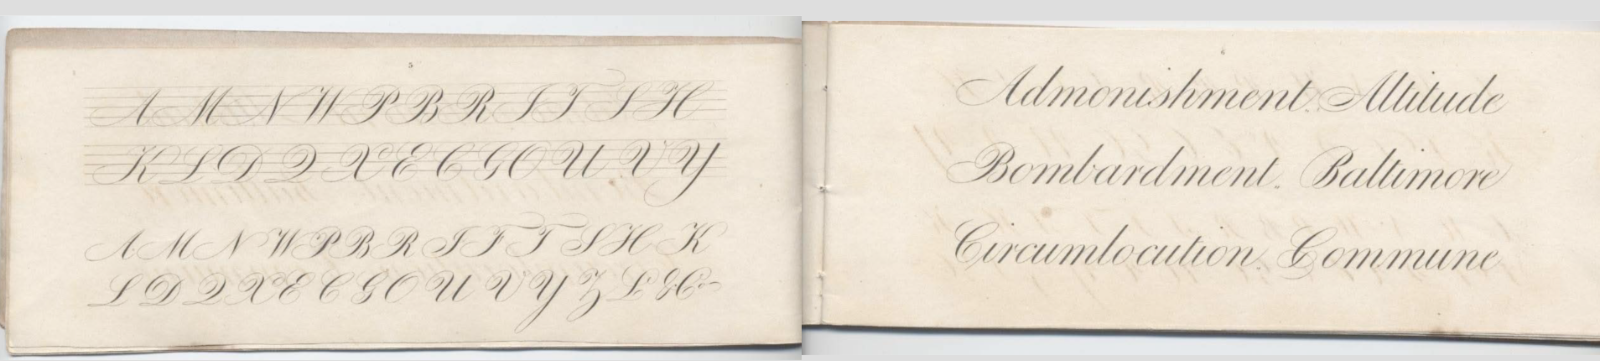 5
A M N W P B R I T S H
K L D Q X E C G O U V Y
A M N W P B R I F T S H K
L D Q X E C G O U V Y Z L &C
6
Admonishment. Altitude
Bombardment. Baltimore
Circumlocution. Commune